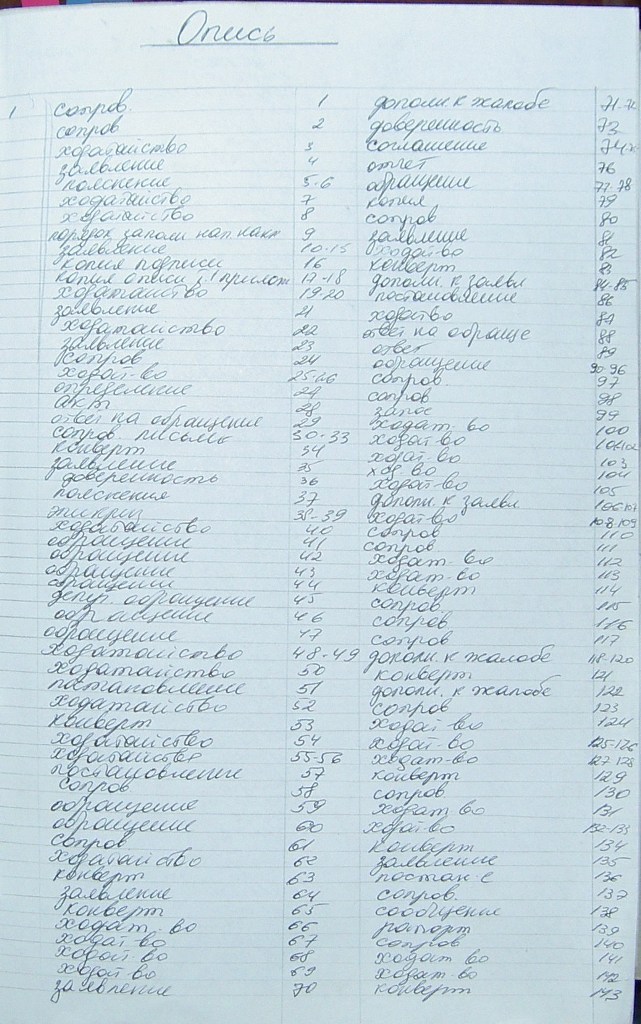 Опись
1 сопров. 1
сопров 2
ходатайство 3
заявление 4
пояснение 5-6
ходатайство 7
ходатайство 8
порядок заполн нап. накт 9
заявление 10-15
копия подписи 16
копия описи 1 прилож 17-18
ходатайство 19-20
заявление 21
ходатайство 22
заявление 23
сопров 24
ходат-во 25-26
определение 27
акт 28
ответ на обращение 29
сопров. письмо 30-33
конверт 34
заявление 35
доверенность 36
пояснения 37
эпикриз 38-39
ходатайство 40
обращении 41
обращении 42
обращении 43
обращении 44
депут. обращение 45
обращение 46
обращение 47
ходатайство 48-49
ходатайство 50
постановление 51
ходатайство 52
конверт 53
ходатайство 54
ходатайство 55-56
постановление 57
сопров 58
обращение 59
обращение 60
сопров 61
ходатайство 62
конверт 63
заявление 64
конверт 65
ходат-во 66
ходат-во 67
ходат-во 68
ходат-во 69
заявление 70
дополн к жалобе 71-72
доверенность 73
соглашение 74
отчет 76
обращение 77-78
копия 79
сопров 80
заявление 81
ходат-во 82
конверт 83
дополн. к заявл 84-85
постановление 86
ходатво 87
ответ на обраще 88
ответ 89
обращение 90-96
сопров. 97
сопров 98
запрос 99
ходат-во 100
ходат-во 101-102
ходат-во 103
ход-во 104
ходат-во 105
дополн. к заявл 106-107
ходат-во 108-109
сопров 110
сопров 111
ходат-во 112
ходат-во 113
конверт 114
сопров 115
сопров 116
сопров 117
дополн. к жалобе 118-120
конверт 121
дополн. к жалобе 122
сопров 123
ходат-во 124
ходат-во 125-126
ходат-во 127-128
конверт 129
сопров 130
ходат во 131
ходат-во 132-133
конверт 134
заявление 135
постан-е 136
сопров. 137
сообщение 138
рапорт 139
сопров 140
ходат во 141
ходат-во 142
конверт 143